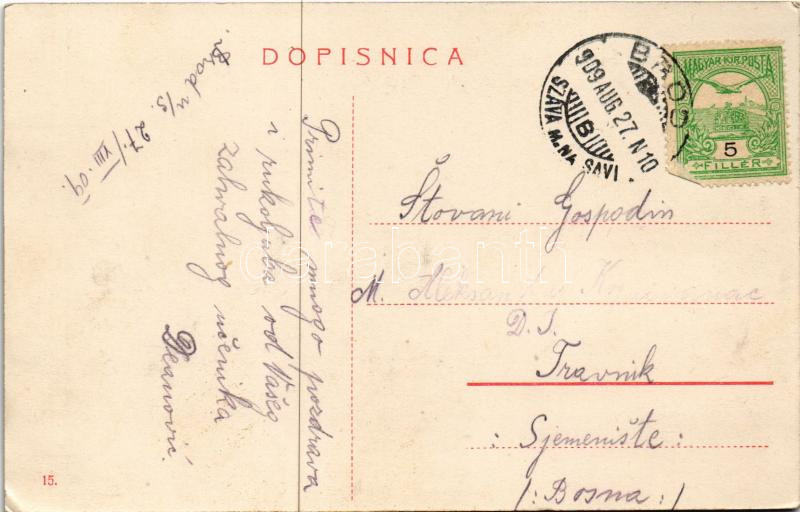 DOPISNICA
Brod n/S. 27. VIII. 09.
Primite mnogo pozdrava
i rukoljuba od Vašeg
zahvalnog učenika
Deanović.
BROD
909 AUG. 27. N10
B
SZÁVA M. NA SAVI
MAGYAR KIR. POSTA
5
FILLÉR
Štovani Gospodin
M.
D. I.
Travnik
: Sjemenište :
/: Bosna :/
15.
darabanth